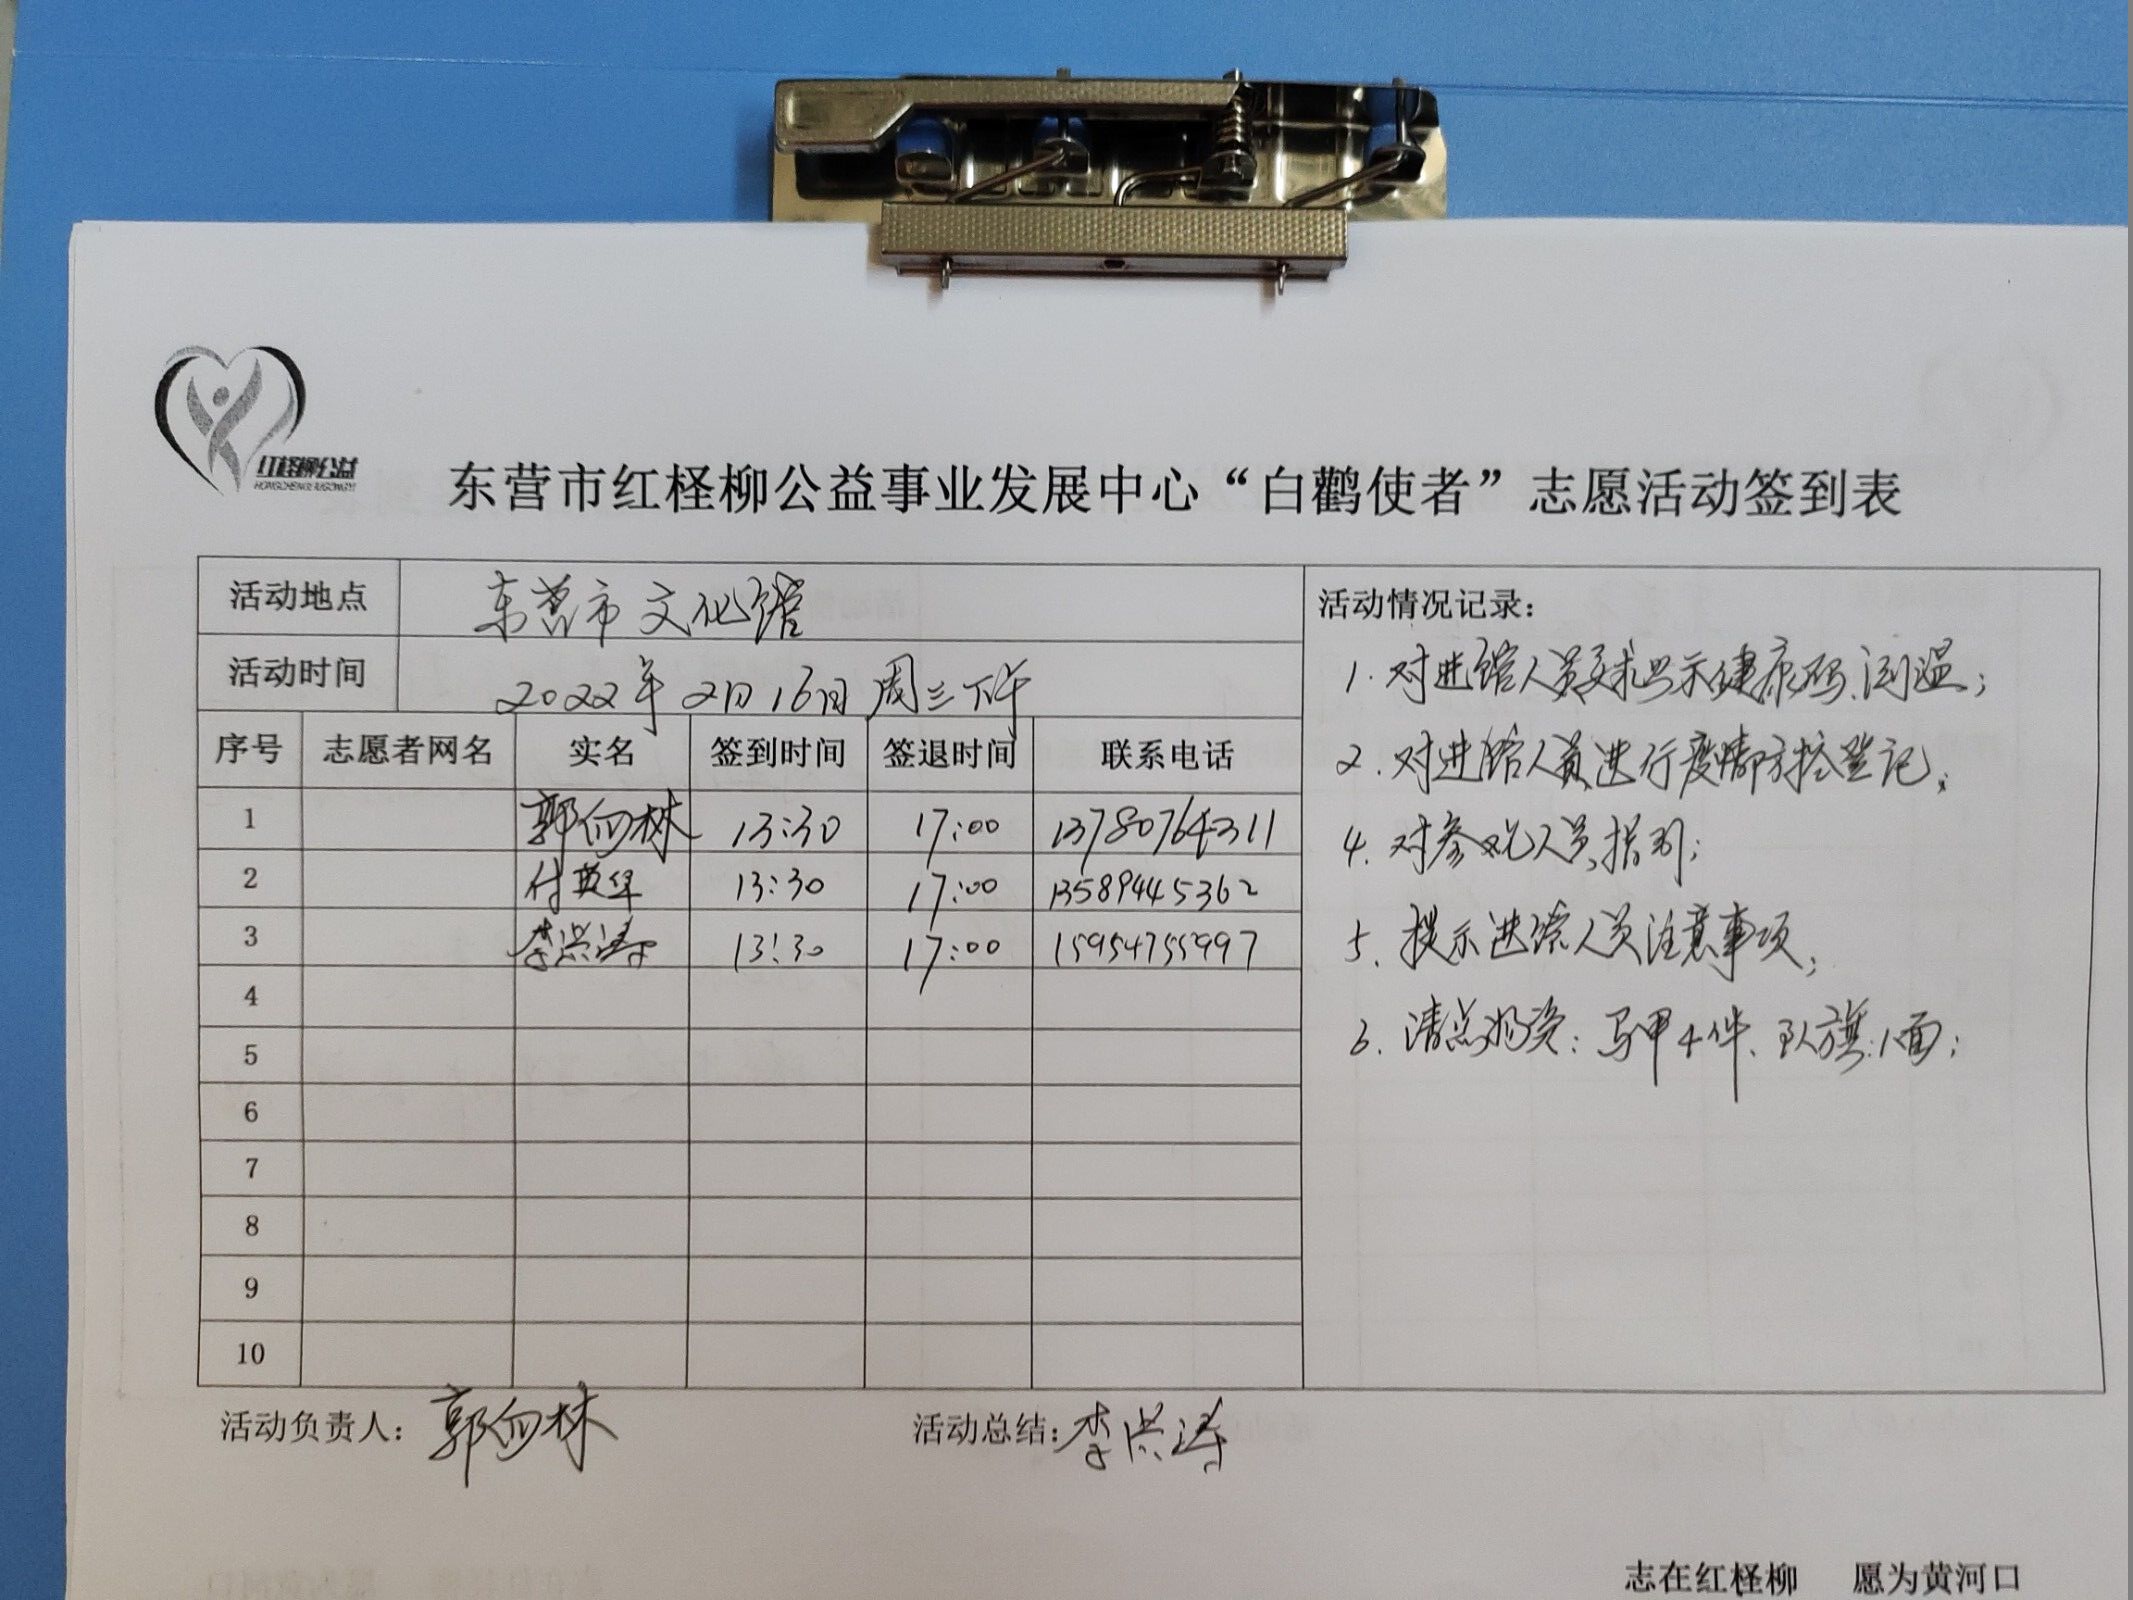 红柽柳公益
东营市红柽柳公益事业发展中心“白鹳使者”志愿活动签到表
活动地点 东营市文化馆
活动时间 2022年2月16日周三下午
序号 志愿者网名 实名 签到时间 签退时间 联系电话
1 郭向林 13:30 17:00 13780764311
2 付英华 13:30 17:00 13589445362
3 李洪涛 13:30 17:00 15954755997
4
5
6
7
8
9
10
活动情况记录：
1. 对进馆人员要求出示健康码、测温；
2. 对进馆人员进行疫情防控登记；
4. 对参观人员指引；
5. 提示进馆人员注意事项；
6. 清点物资：马甲4件、队旗：1面；
活动负责人：郭向林 活动总结：李洪涛
志在红柽柳 愿为黄河口